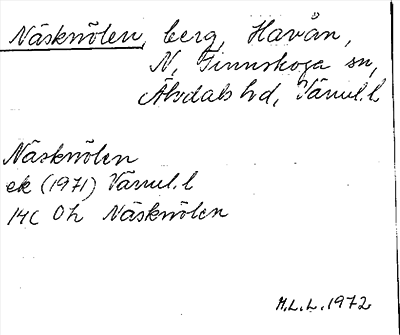 Näsknölen, berg, Havån,
N, Finnskoga sn,
Älvdals hd, Värml. l
Näsknölen
ek (1971) Värml. l
14C 0h Näsknölen
M.L.L. 1972